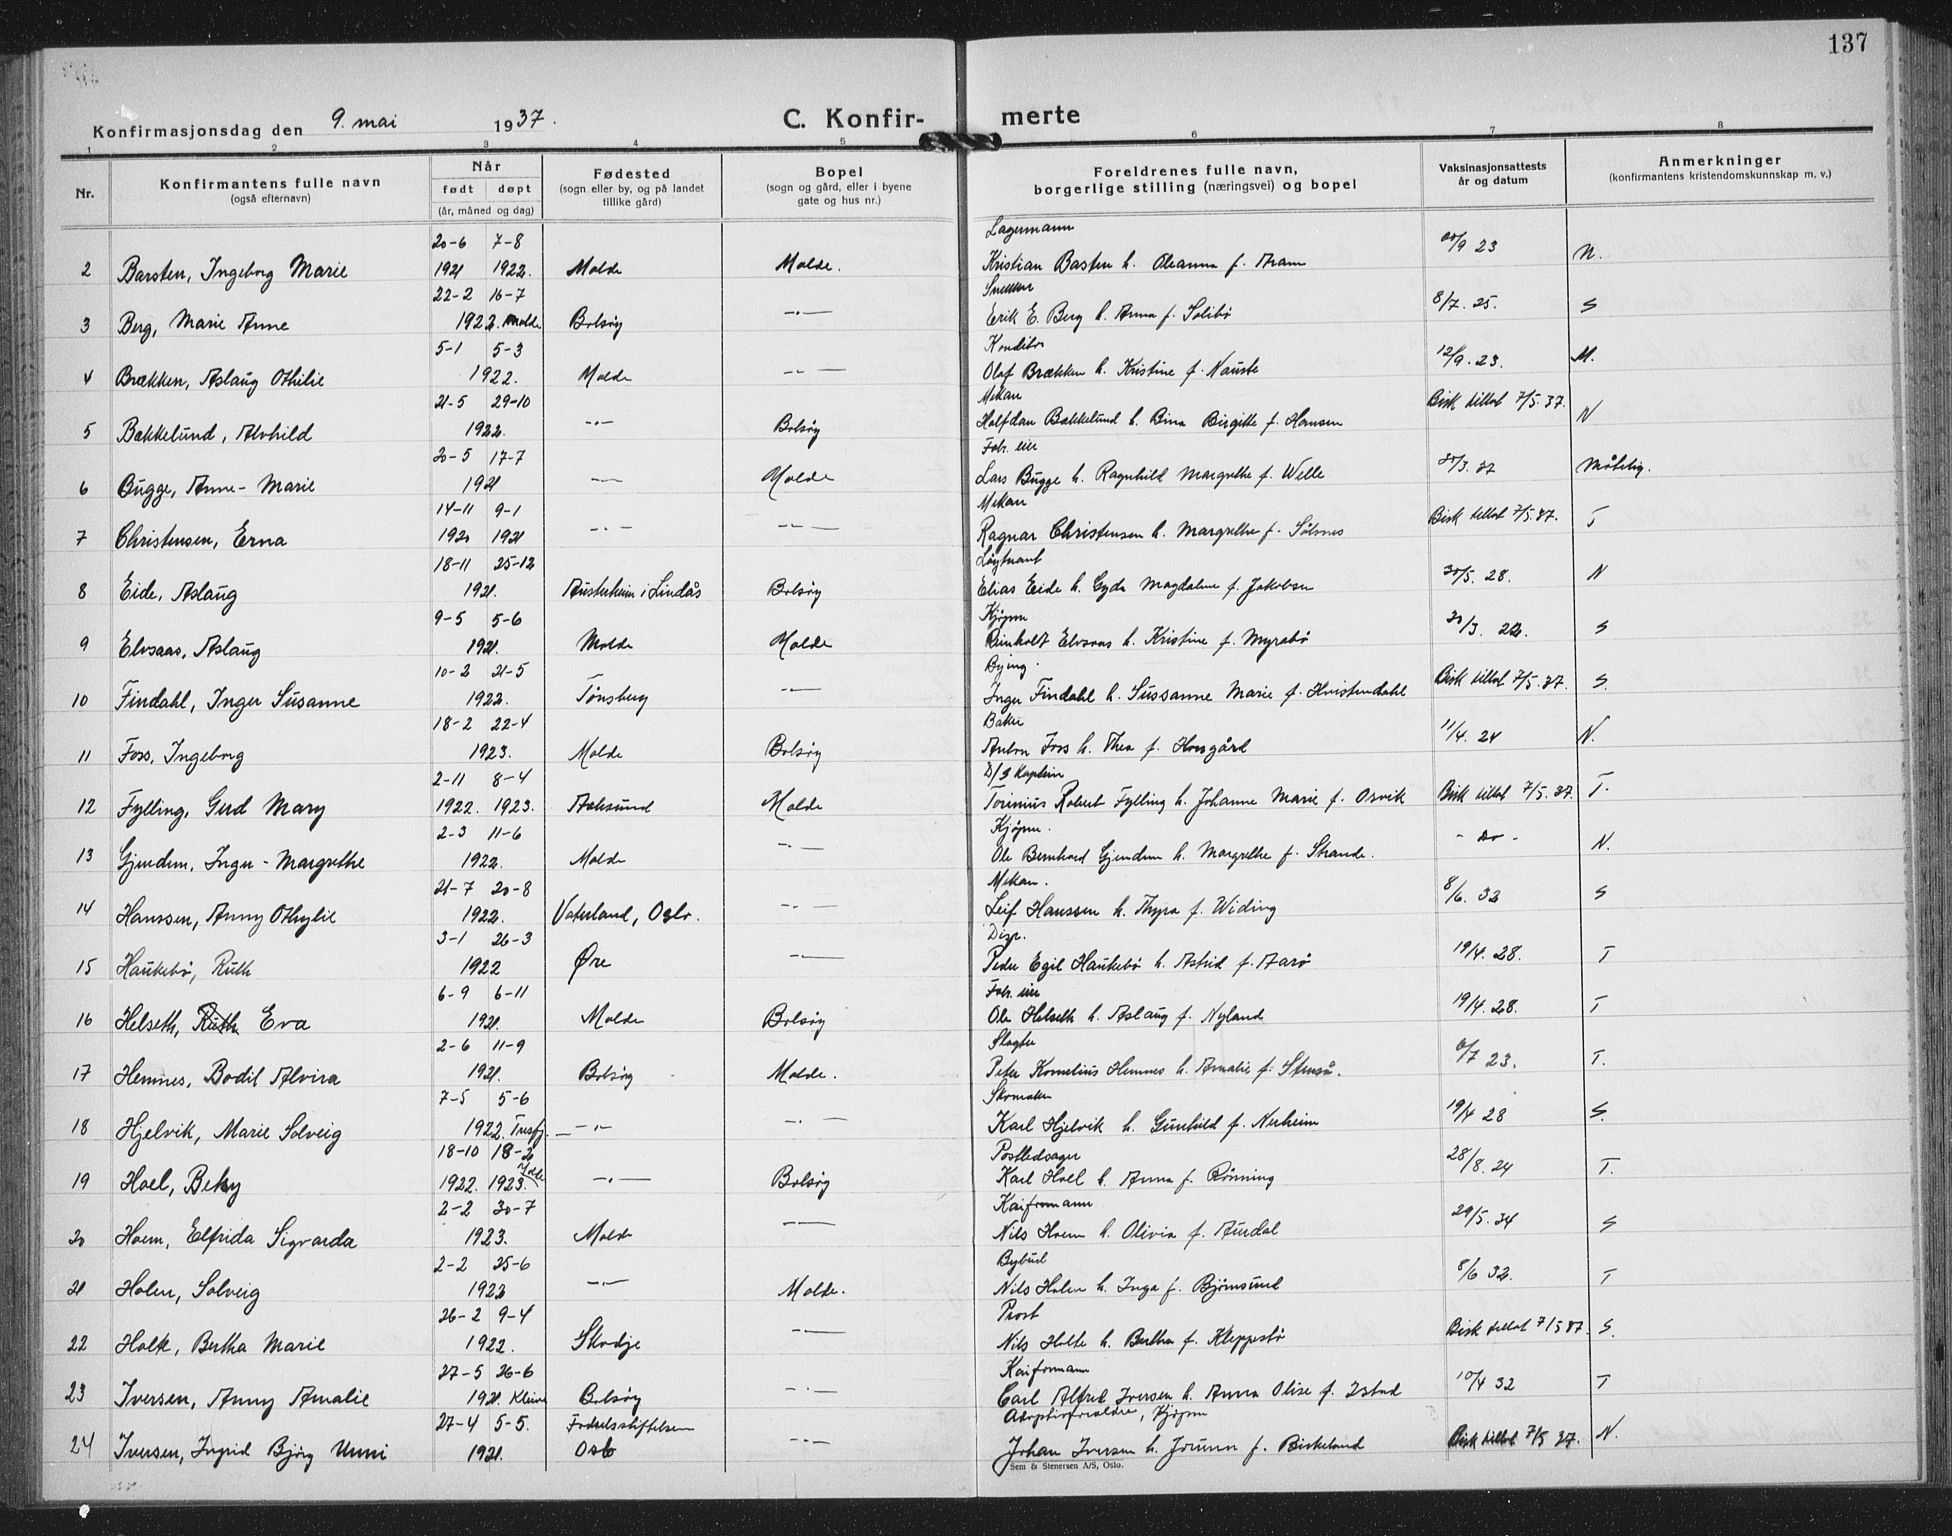 137
Konfirmasjonsdag den 9. mai 1937. C. Konfirmerte
1 2 3 4 5 6 7 8
Nr. Konfirmantens fulle navn (også efternavn) Når født døpt (år, måned og dag) Fødested (sogn eller by, og på landet tillike gård) Bopel (sogn og gård, eller i byene gate og hus nr.) Foreldrenes fulle navn, borgerlige stilling (næringsvei) og bopel Vaksinasjonsattests år og datum Anmerkninger (konfirmantens kristendomskunnskap m. v.)
20-6 7-8 Lagermann
2 Barsten, Ingeborg Marie 1921 1922. Molde Molde. Kristian Basten h. Oleanna f. Aram 23 N.
22-2 16-7 Snekker
3 Berg, Marie Anne 1922. Molde Bolsøy -"- Erik E. Berg h. Anna f. Solibø 8/7. 25. S
5-1 5-3 Konditor
4 Brækken, Aslaug Othilie 1922. Molde -"- Olaf Brækken h. Kristine f. Nauste 12/9. 23. M.
21-5 29-10 Mekan
5 Bakkelund, Alvhild 1922. -"- Bolsøy Halfdan Bakkelund h. Bina Birgitte f. Hansen Bisk tillot 7/5.37. N
20-5 17-7 Fabr. eier
6 Bugge, Anne-Marie 1921 -"- Molde Lars Bugge h. Ragnhild Margrethe f. Welle Måtelig.
14-11 9-1 Mekan
7 Christensen, Erna 1920 1921 -"- -"- Ragnar Christensen h. Margrethe f. Solsnes Bisk tillot 7/5.37. T
18-11 25-12 Løytnant
8 Eide, Aslaug 1921. Austerheim i Lindås Bolsøy Elias Eide h. Gyda Magdalene f. Jakobsen 30/5. 28. N
9-5 5-6 Kjøpm
9 Elvsaas, Aslaug 1921. Molde Molde Reinholt Elvsaas h. Kristine f. Myrabø 30/3. 22. S
10-2 21-5 Bying.
10 Findahl, Inger Susanne 1922. Tønsberg -"- Inger Findahl h. Sussanne Marie f. Hvistendahl Bisk tillot 7/5.37. S.
18-2 22-4 Baker
11 Foss, Ingeborg 1923. Molde Bolsøy Anton Foss h. Thea f. Horsgård 11/4. 24 N.
2-11 8-4 D/S Kaptein
12 Fylling, Gerd Mary 1922. 1923. Aalesund Molde Torinius Robert Fylling h. Johanne Marie f. Osvik Bisk tillot 7/5.37. T.
2-3 11-6 Kjøpm.
13 Gjendem, Inger-Margrethe 1922. Molde -"- Ole Bernhard Gjendem h. Margrethe f. Strande. - Do - N.
21-7 20-8 Mekan.
14 Hanssen, Anny Othylie 1922. Vaterland, Oslo. -"- Leif Hanssen h. Thyra f. Widing 8/6. 32 S
3-1 26-3 Disp.
15 Haukebø, Ruth 1922 Øre -"- Peder Egil Haukebø h. Astrid f. Aarø 19/4. 28. T
6-9 6-11 Fabr. eier
16 Helseth, Ruth Eva 1921. Molde Bolsøy Ole Helseth h. Aslaug f. Nyland 19/4. 28. T
2-6 11-9 Slagter
17 Hemnes, Bodil Alvira 1921. Bolsøy Molde. Peter Kornelius Hemnes h. Amalie f. Stenså. 6/7 23. T.
7-5 5-6 Skomaker
18 Hjelvik, Marie Solveig 1922. Tresfj. -"- -"- Karl Hjelvik h. Gunhild f. Nerheim 19/4 28 S.
18-10 18-2 Postledsager
19 Hoel, Betsy 1922. 1923. Molde -"- Bolsøy Karl Hoel h. Anna f. Rønning 28/8. 24 T.
2-2 30-7 Kaiformann
20 Hoem, Elfrida Sigvarda 1923. Molde -"- Nils Hoem h. Olivia f. Aurdal 29/5. 34 S
2-2 25-6 Bybud
21 Holen, Solveig 1922 -"- Molde. Nils Holen h. Inga f. Bjørnsund 8/6 32. T
26-2 9-4 Prost
22 Holte, Bertha Marie 1922. Skodje -"- Nils Holte h. Bertha f. Kleppestø Bisk tillot 7/5 37. S.
27-5 26-6 Kaiformann
23 Iversen, Anny Amalie 1921. Kleive Bolsøy -"- Carl Alfred Iversen h. Anna Olise f. Istad 10/4 32 T
27-4 5-5. Fødselsstiftelsen Adoptivforeldre, Kjøpm
24 Iversen, Ingrid Bjørg Unni 1921. Oslo -"- Johan Iversen h. Jorunn f. Birkeland Bisk tillot 7/5 37. N.
Sem & Stenersen A/S, Oslo.